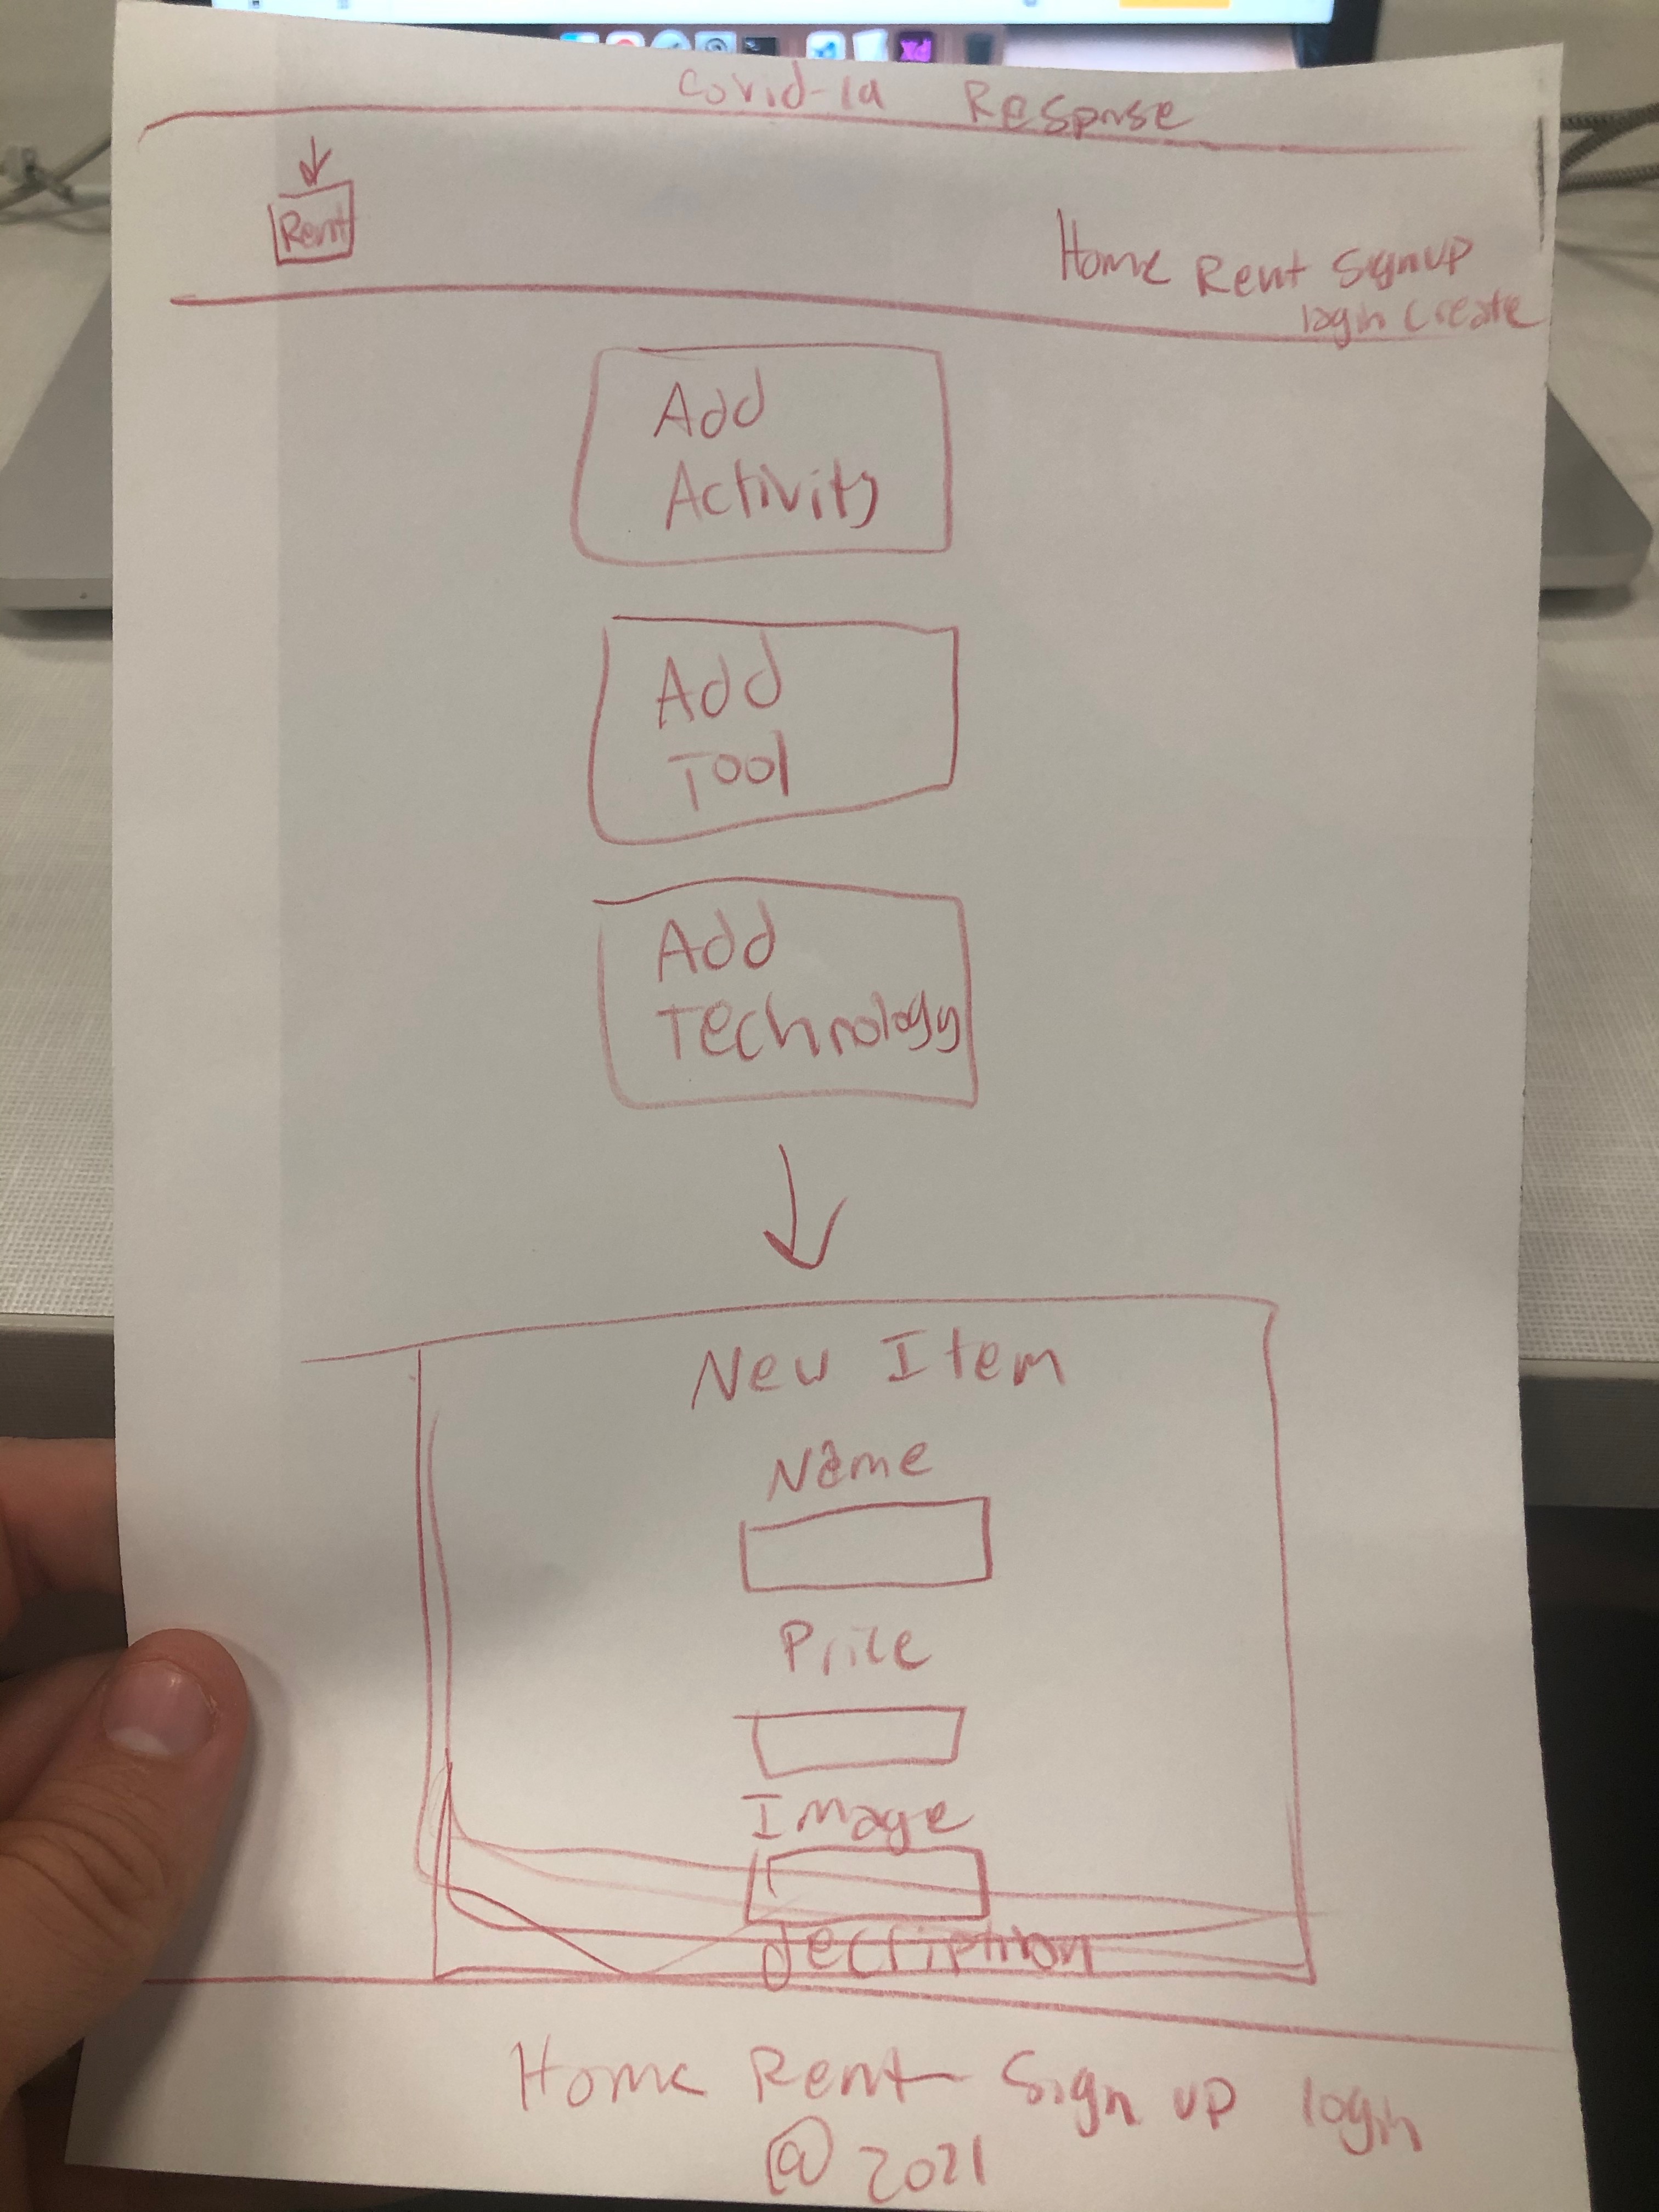 Covid-19 Response
Rent
Home Rent Signup
login Create
Add
Activity
Add
Tool
Add
Technology
New Item
Name
Price
Image
decription
Home Rent Sign up login
@ 2021